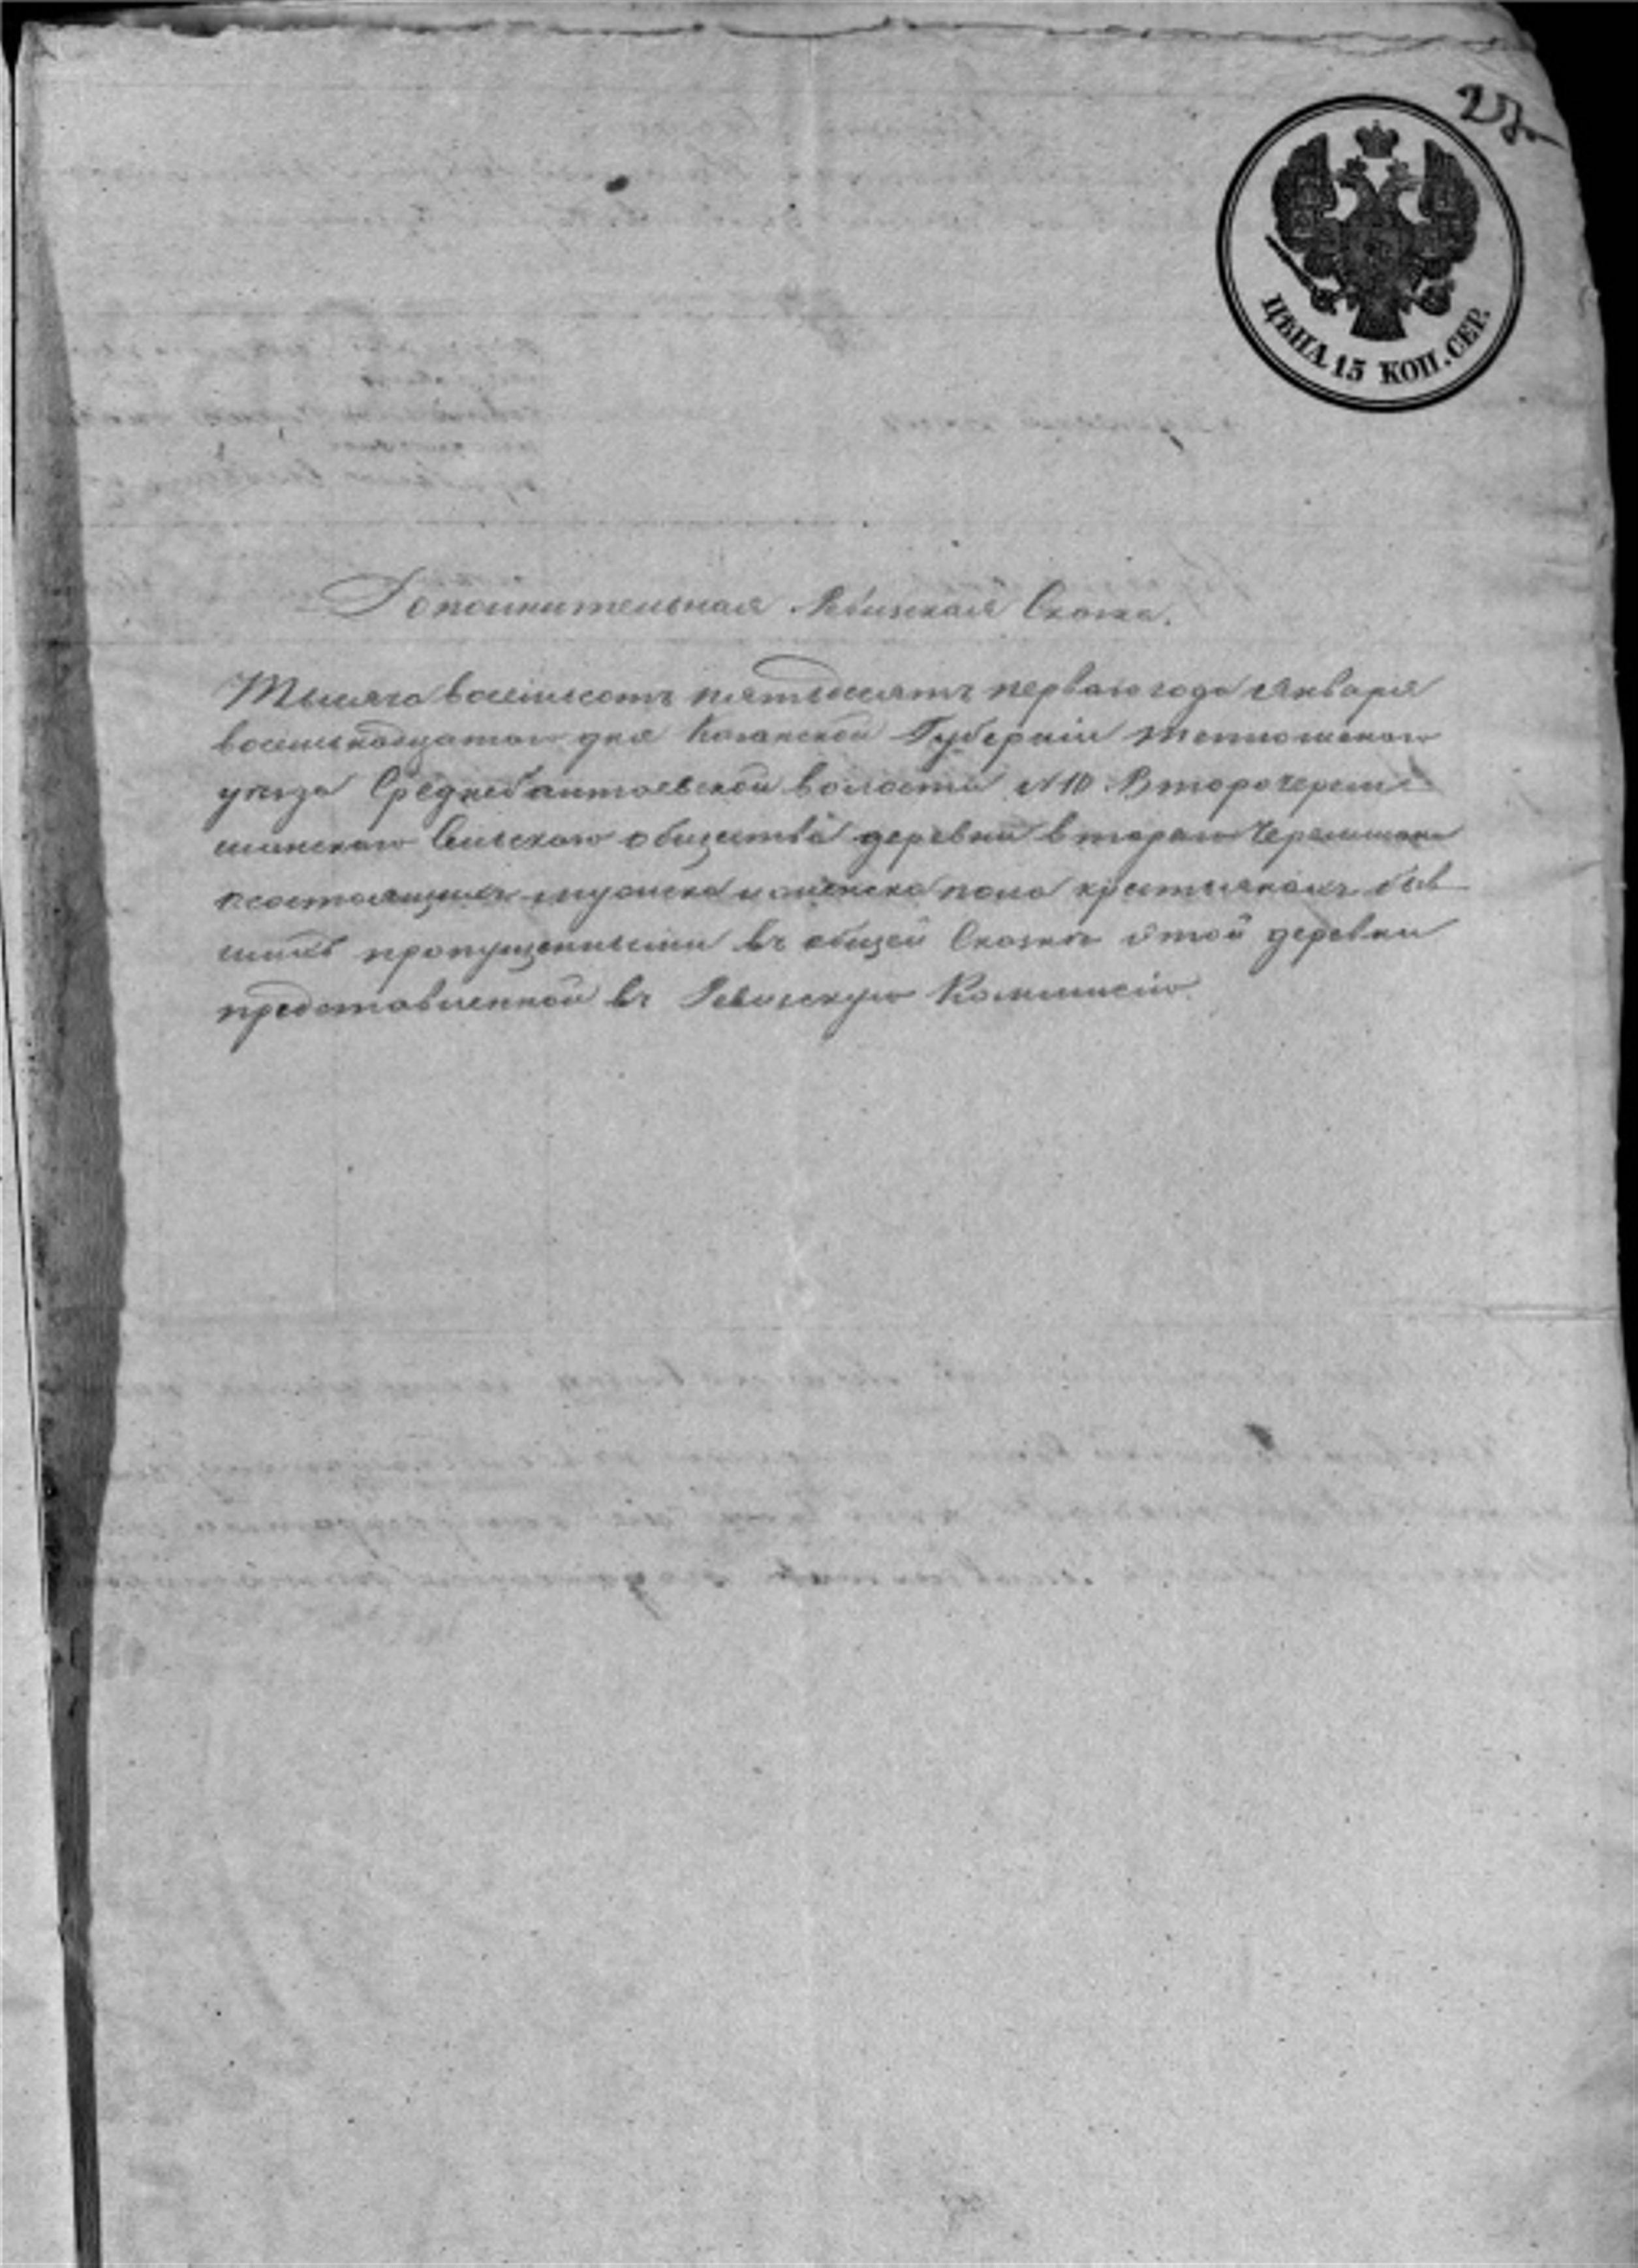 27
ЦѢНА 15 КОП. СЕР.
Дополнительная Ревизская Сказка.
Тысяча восемьсотъ пятьдесятъ перваго года Января
восемьнадцатого дня Казанской Губерніи Тетюшскаго
уѣзда Среднебалтаевской волости №10 Второчерем
шанскаго Сельскаго общества деревни втораго Черемшана
о состоящихъ мужска и женска пола крестьянахъ быв
шихъ пропущенными въ общей Сказкѣ этой деревни
представленной въ Ревизскую Коммисію